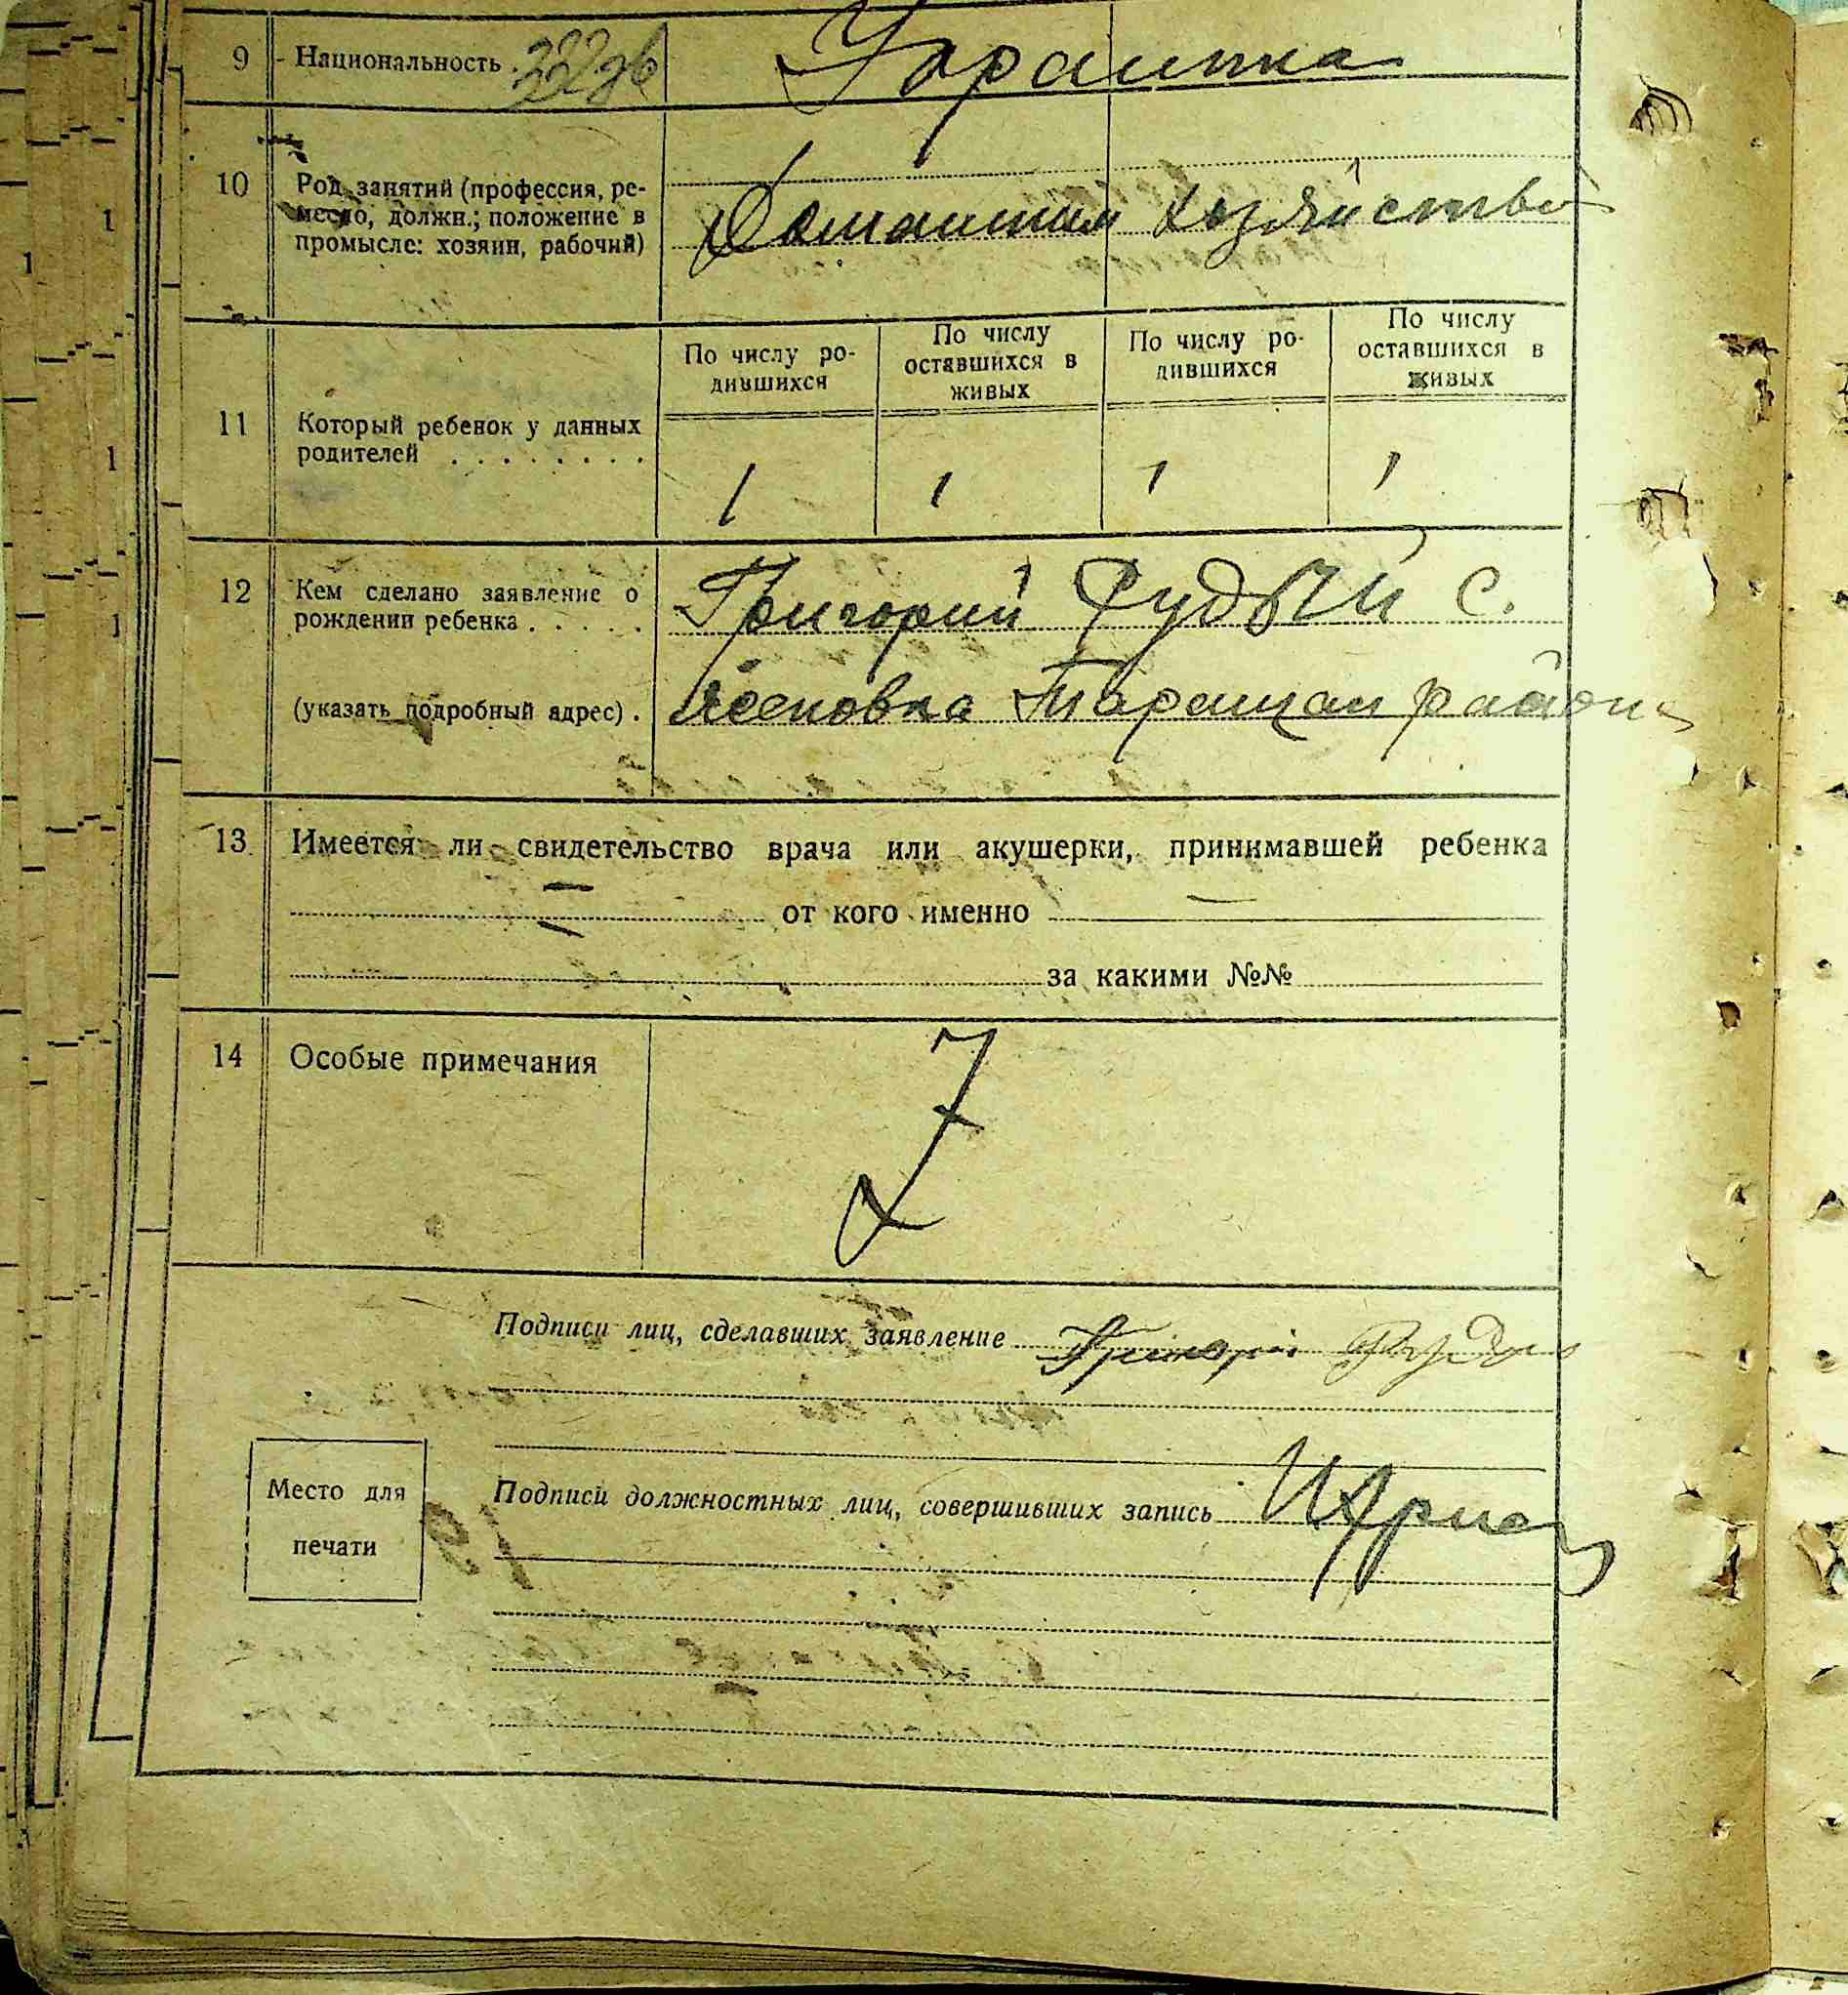 9 Национальность . 322дв Украинка
10 Род занятий (профессия, ре-
месло, должн.; положение в
промысле: хозяин, рабочий)
Домашнем хозяйстве
По числу ро-
дившихся
По числу
оставшихся в
живых
По числу ро-
дившихся
По числу
оставшихся в
живых
11 Который ребенок у данных
родителей . . . . . . . .
1 1 1 1
12 Кем сделано заявление о
рождении ребенка . . . . .
Григорий Рудый с.
(указать подробный адрес) .
Таращан района
13 Имеется ли свидетельство врача или акушерки, принимавшей ребенка
— от кого именно —
за какими №№
14 Особые примечания
Подписи лиц, сделавших заявление Григорі Рудий
Подписи должностных лиц, совершивших запись
Место для
печати